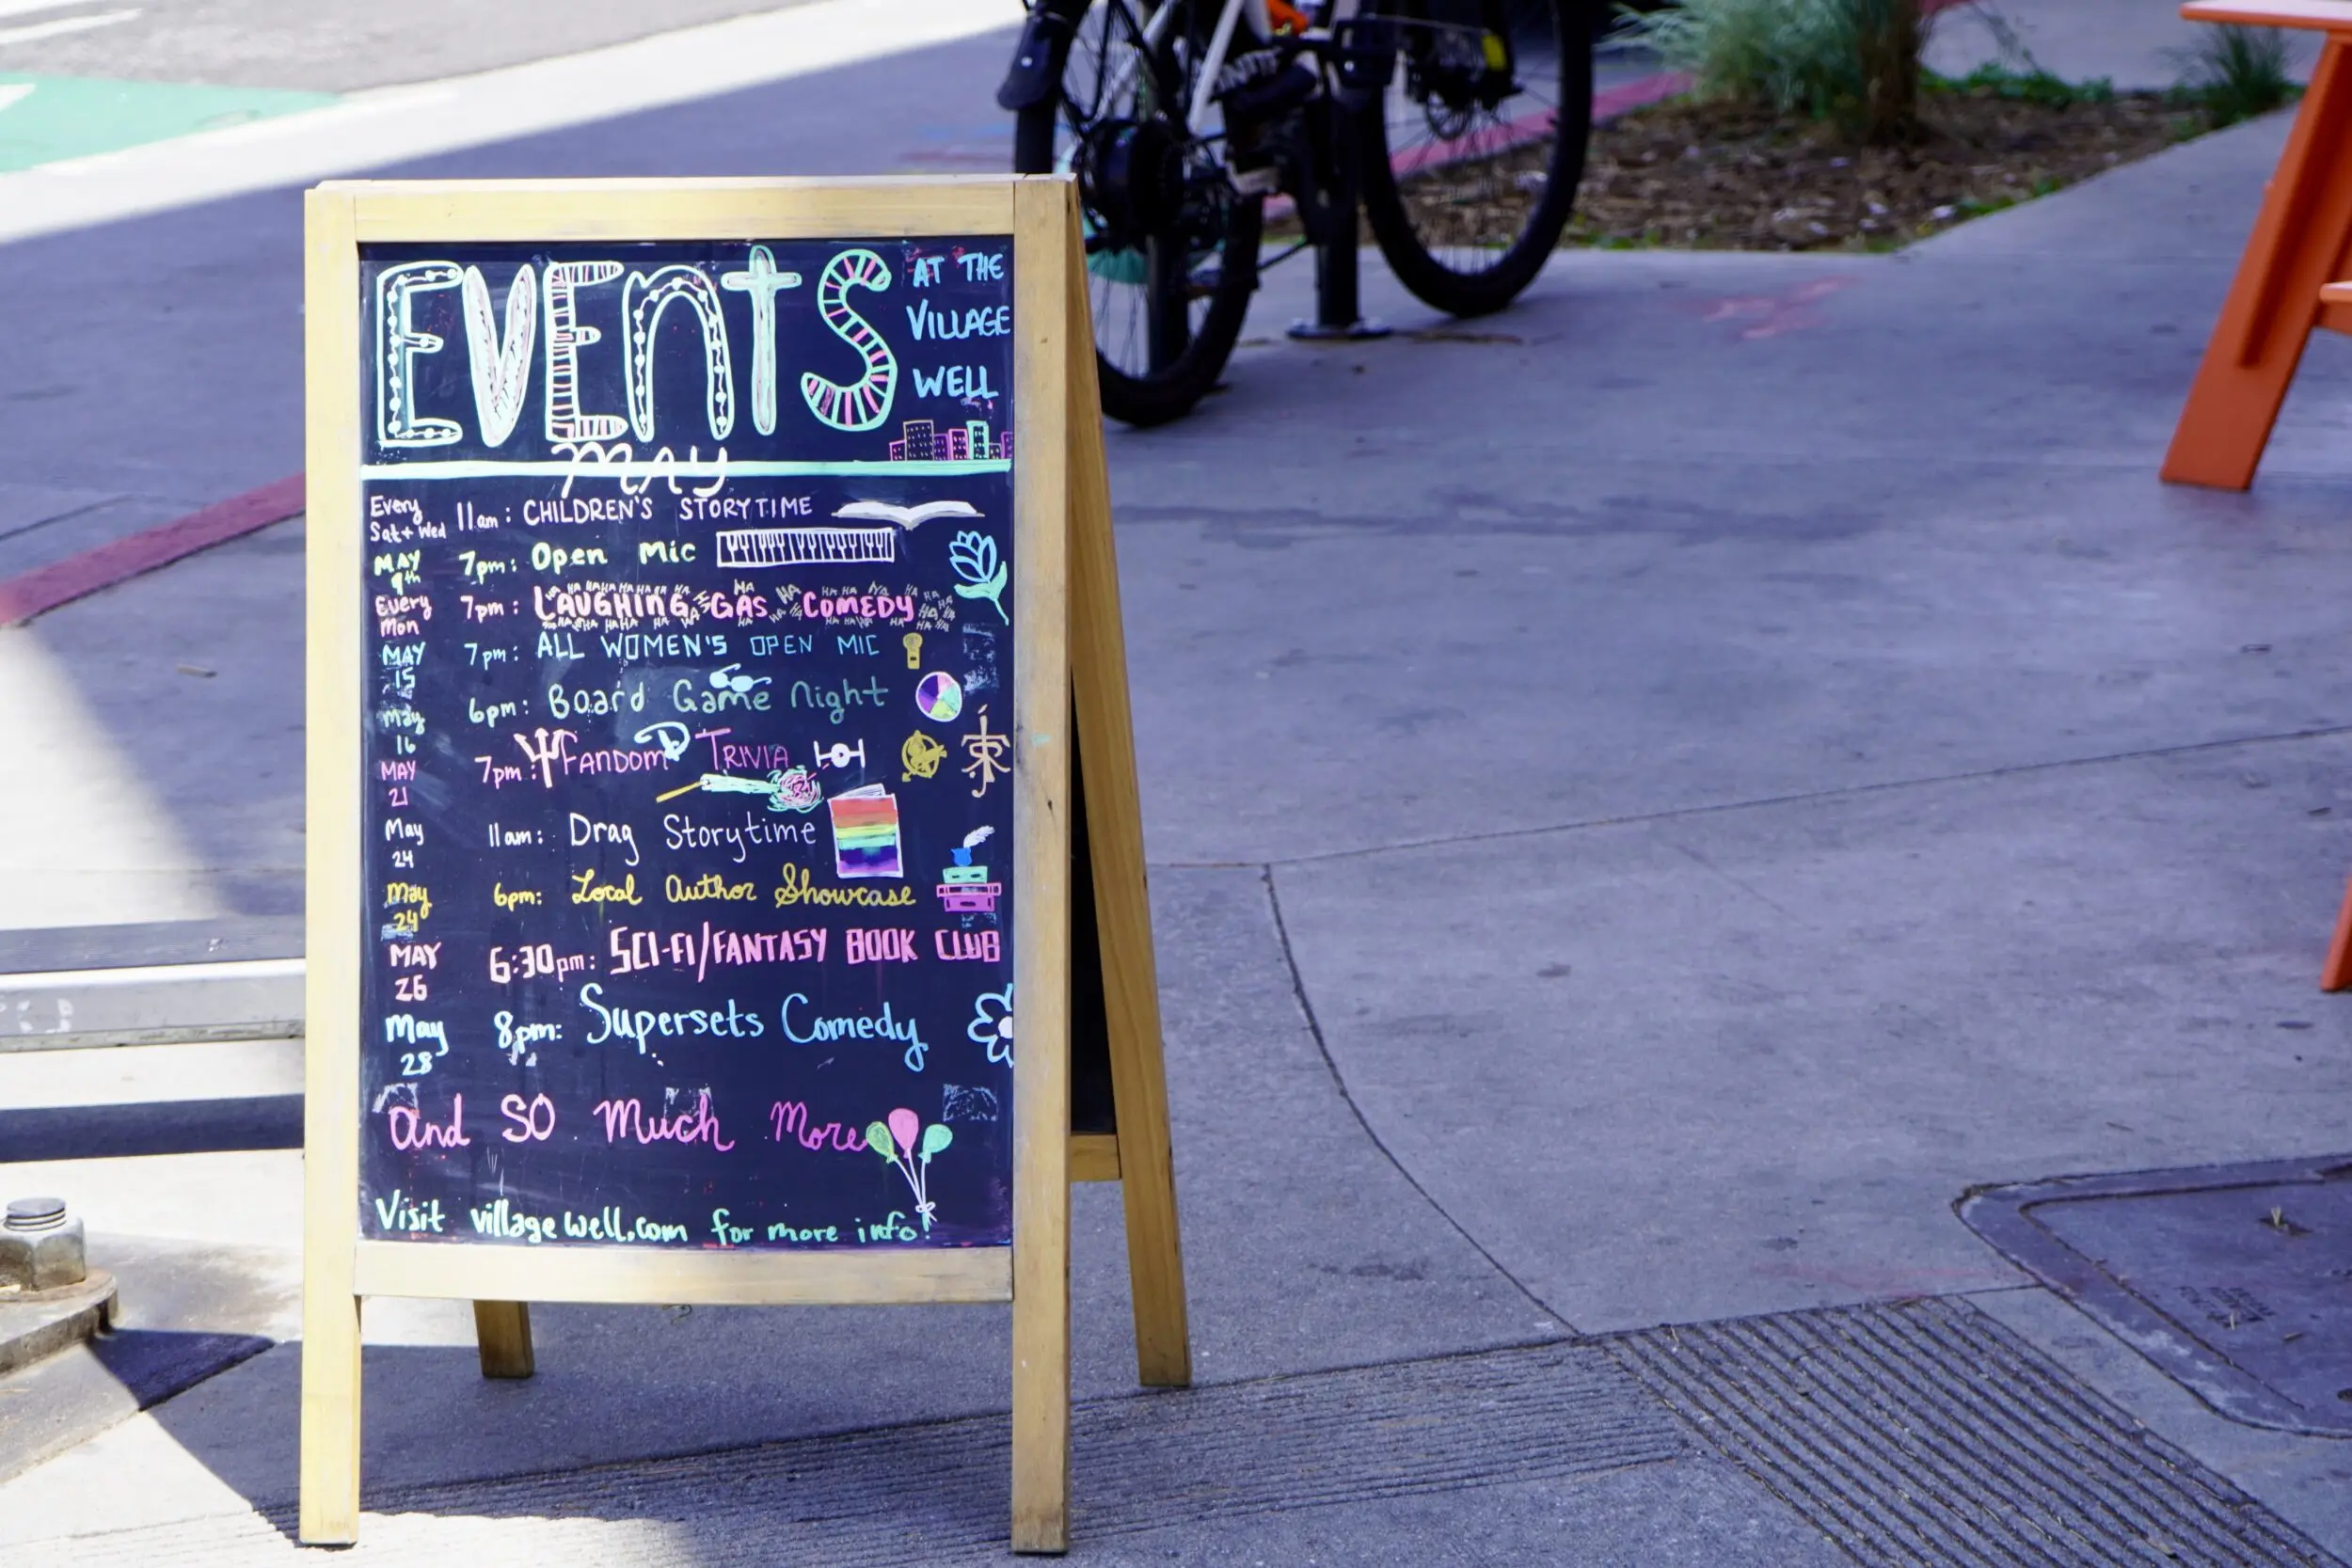 EVEntS AT THE VILLAGE WELL
MAY
Every Sat + Wed 11am: CHILDREN'S STORYTIME
MAY 9th 7pm: Open Mic
Every Mon 7pm: LAUGHING GAS COMEDY
MAY 15 7pm: ALL WOMEN'S OPEN MIC
May 16 6pm: Board Game Night
MAY 21 7pm: FANDOM TRIVIA
May 24 11am: Drag Storytime
May 24 6pm: Local Author Showcase
MAY 26 6:30pm: SCI-FI/FANTASY BOOK CLUB
May 28 8pm: Supersets Comedy
And SO Much More
Visit villagewell.com for more info!